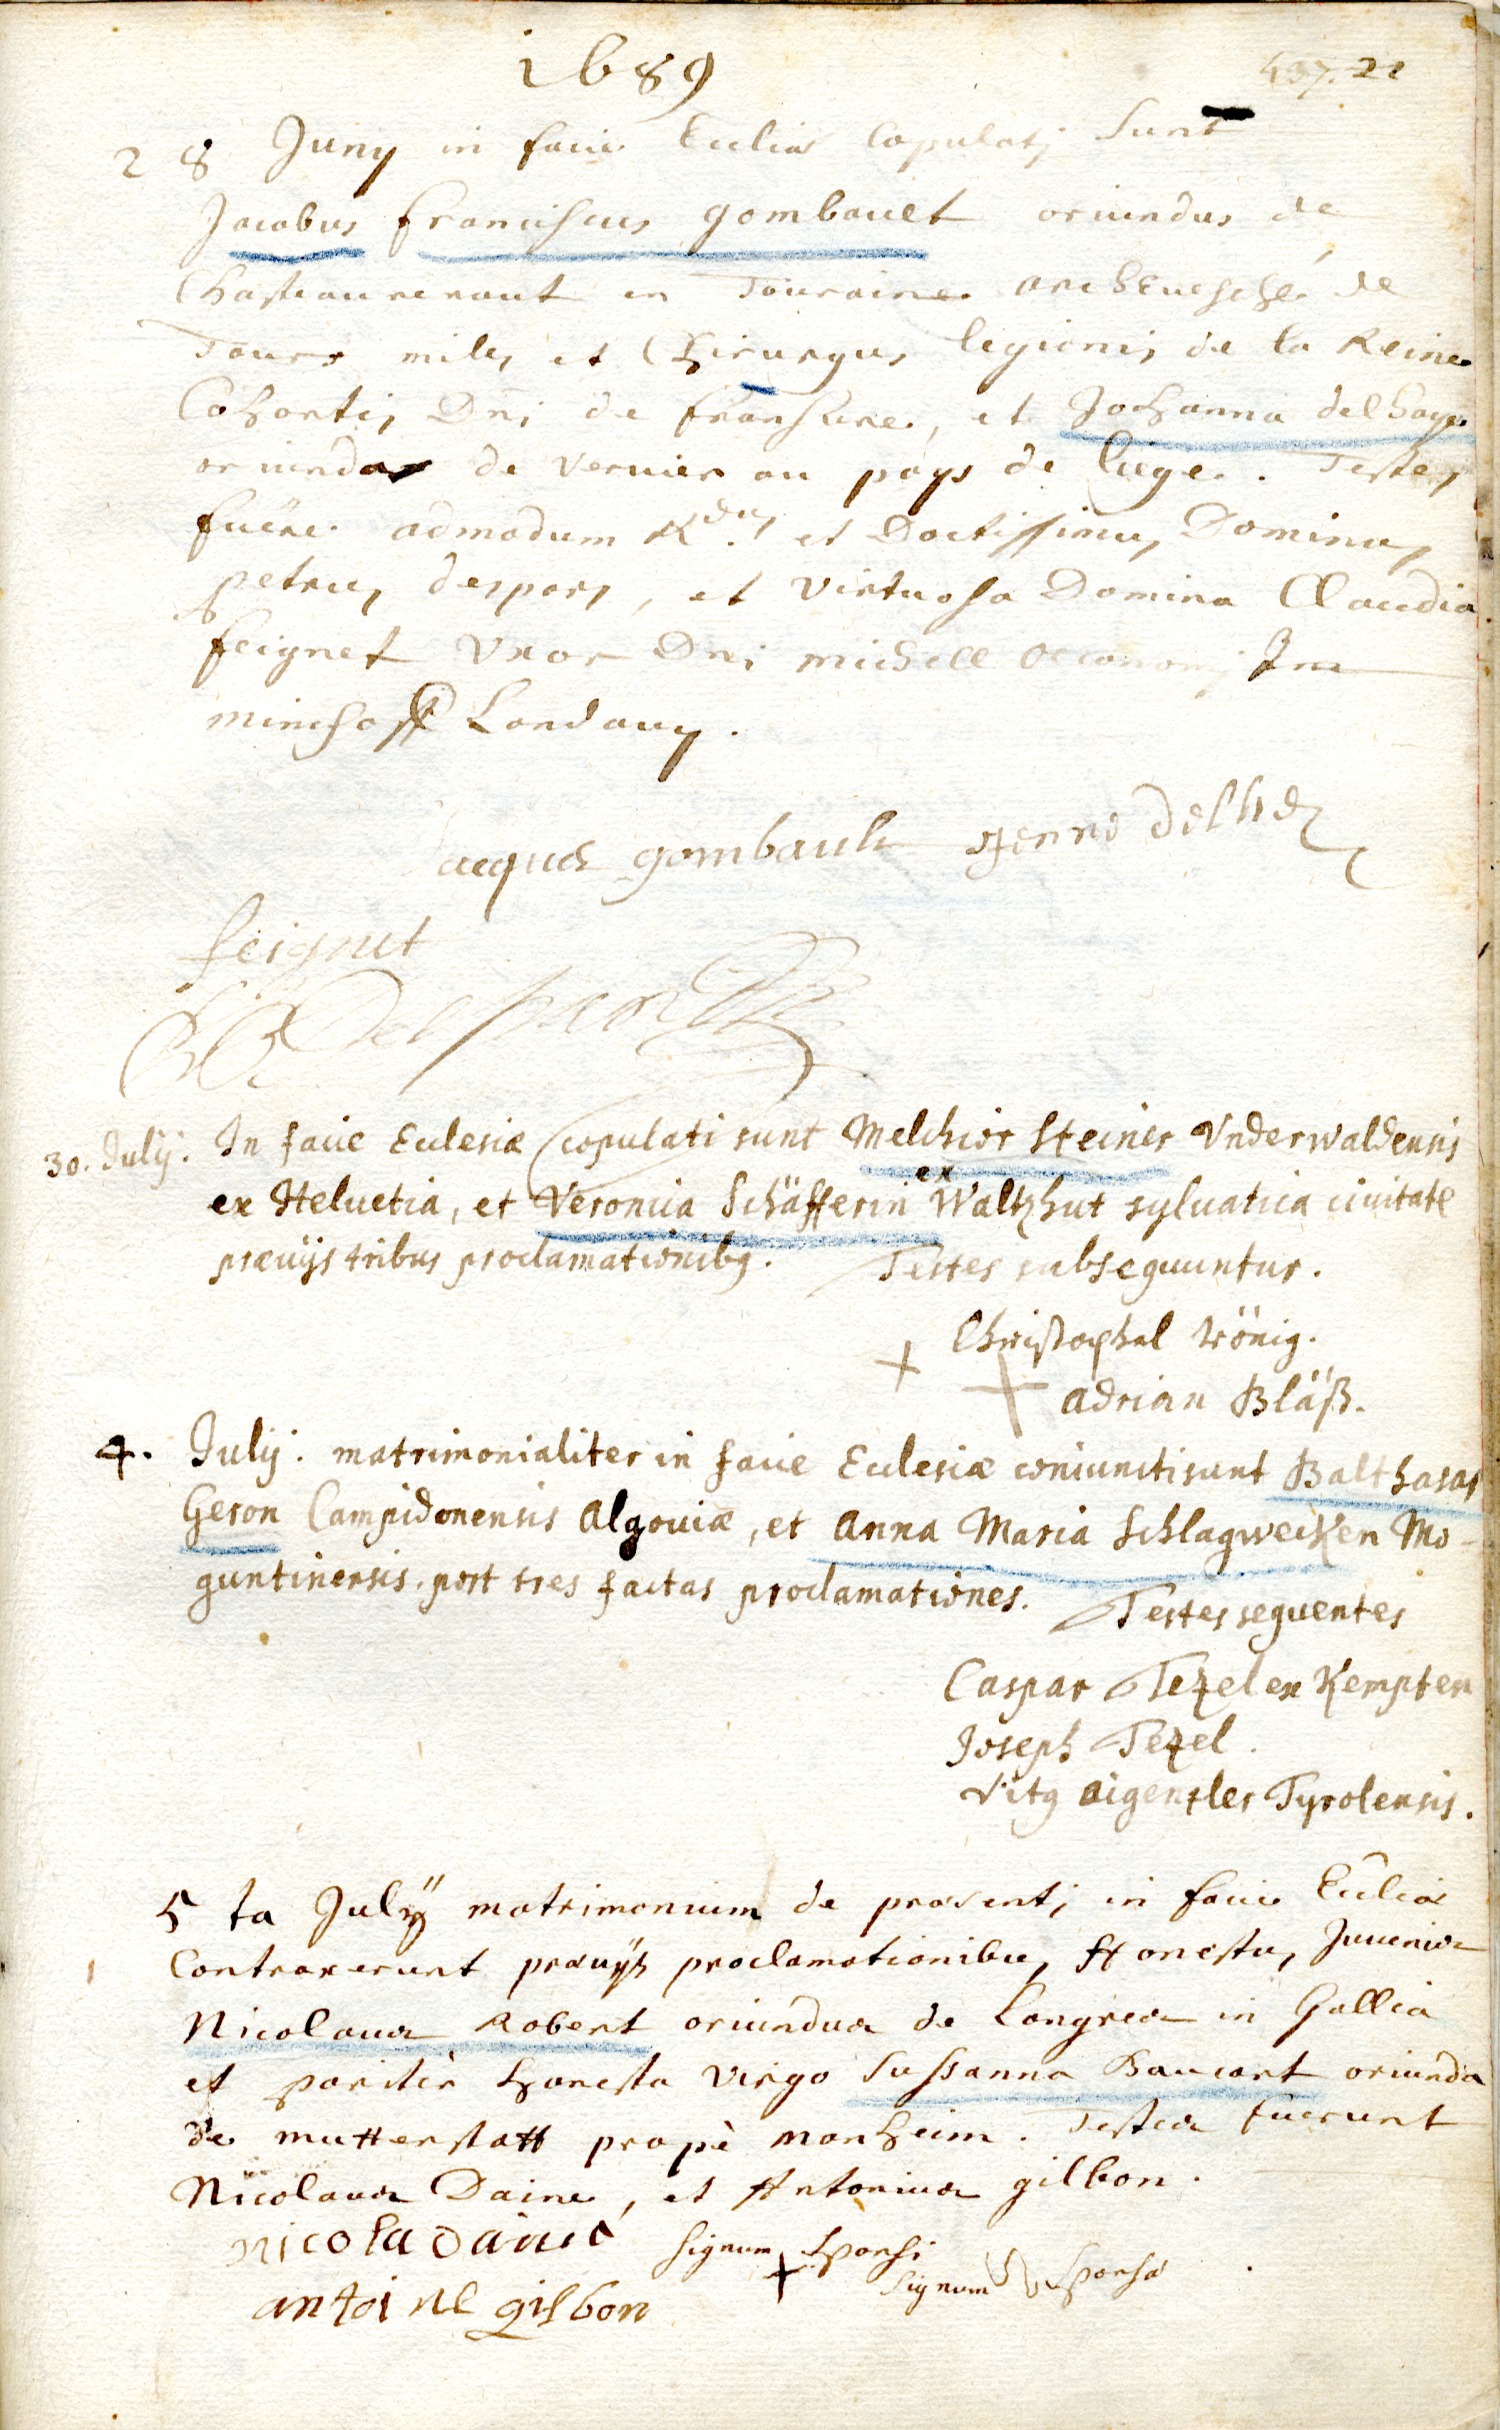 1689
437. 22
28 Juny in facie Eccliae Copulatj Sunt
Jacobus franciscus gombauet oriundus de
Chasteaurenaut en Touraine archeuesché de
Tours miles et Chirurgus legionis de la Reine
Cohortis Dni de fransure, et Johanna delhaye
oriunda de Veruier au pays de liege. Testes
fuëre admodum Rdus et Doctissimus Dominus
petrus desports, et virtuosa Domina Claudia
feignet Vxor Dni michell oeconomj Im
minchoff Landauy.
Jacques gombault Jenne delhe
feignet
Desports
30. Julij. In facie Ecclesiæ copulati sunt Melchior Steiner Vnderwaldensis
ex Helvetia, et Veronica Schäfferin ex Waltzhut syluatica ciuitate
præuijs tribus proclamationibq. Testes subsequuntur.
Christophel König.
+
+ Adrian Bläß.
4. Julij. matrimonialiter in facie Ecclesiæ coniuncti sunt Balthasar
Geron Campidonensis Algouiæ, et Anna Maria Schlagwecken Mo-
guntinensis. post tres factas proclamationes. Testes sequentes
Caspar Tezel ex Kempten
Joseph Tezel.
Vitq Aigenzler Tyrolensis.
5ta Julÿ matrimonium de præsentj in facie Ecclia
Contraxerunt præuÿs proclamationibus Honestus Juuenis
Nicolaus Robert oriundus de Langres in Gallia
et pariter honesta virgo Sussanna Baucart oriunda
de mutterstatt propè manheim. Testes fuerunt
Nicolaus Daine, et Antonius gilbon.
nicola daine signum + Sponsi
signum Sponsa
antoine gilbon